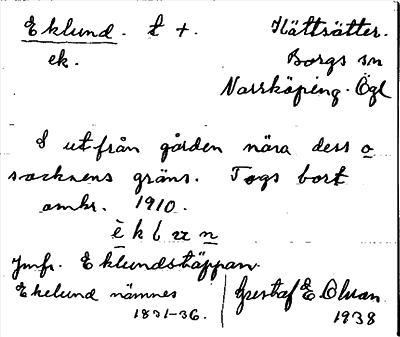 Eklund. t +. Hättsätter.
ek. Borgs sn
Norrköping. Ögl
S ut från gården nära dess o
socknens gräns. Togs bort
omkr. 1910.
è k l ɯ n
Jmfr. Eklundstäppan.
Ekelund nämnes
1831-36.
Gustaf E Olvan
1938